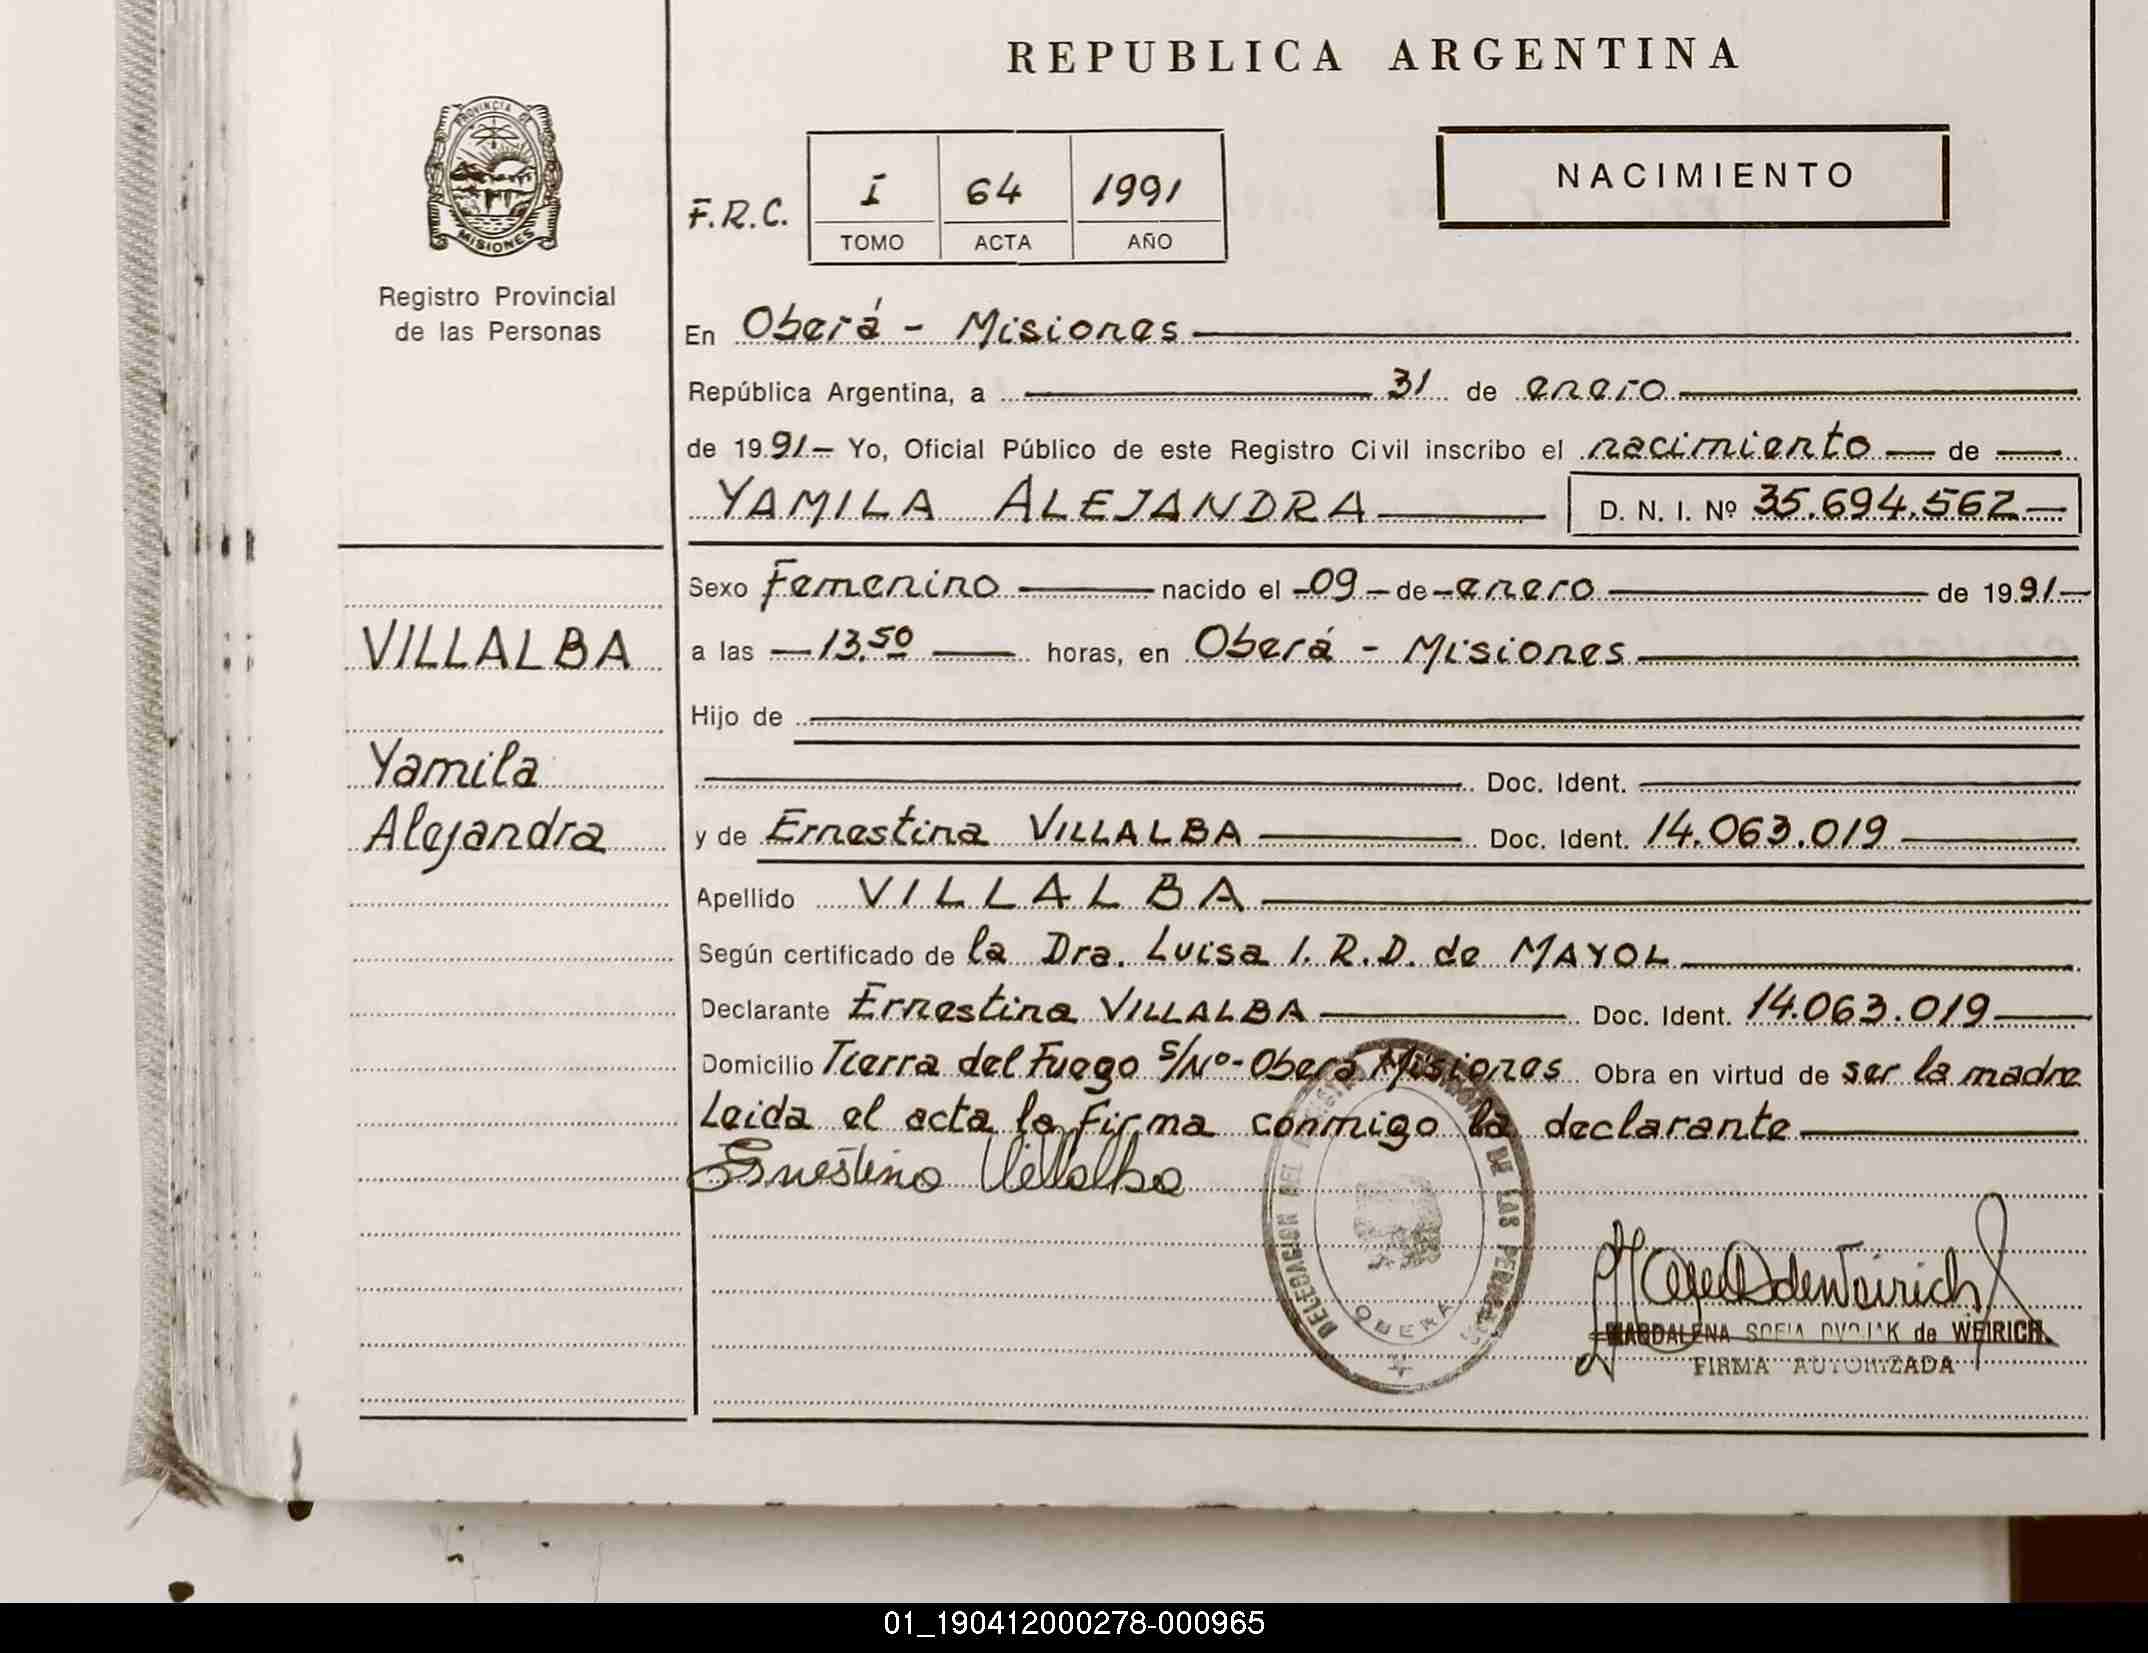 REPUBLICA ARGENTINA
PROVINCIA DE
MISIONES
Registro Provincial
de las Personas
NACIMIENTO
F.R.C. I 64 1991
TOMO ACTA AÑO
En Oberá - Misiones
República Argentina, a 31 de enero
de 1991- Yo, Oficial Público de este Registro Civil inscribo el nacimiento de
YAMILA ALEJANDRA D. N. I. Nº 35.694.562
Sexo Femenino nacido el 09 de enero de 1991
VILLALBA
a las 13.50 horas, en Oberá - Misiones
Hijo de
Yamila
Doc. Ident.
Alejandra
y de Ernestina VILLALBA Doc. Ident. 14.063.019
Apellido VILLALBA
Según certificado de la Dra. Luisa I. R. D. de MAYOL
Declarante Ernestina VILLALBA Doc. Ident. 14.063.019
Domicilio Tierra del Fuego S/Nº- Oberá Misiones Obra en virtud de ser la madre
Leida el acta la firma conmigo la declarante
Ernestina Villalba
DELEGACION DEL DE LAS PERSONAS
OBERA
MAGDALENA SOFIA DVOJAK de WEIRICH
FIRMA AUTORIZADA
01_190412000278-000965